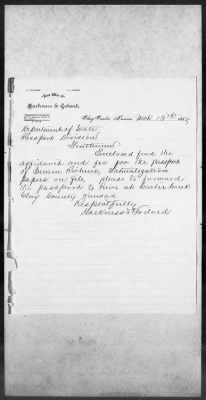 Law Office of
Harkness & Godard,
Clay Center, Kansas, Mch 13th 188
Department of State
Passport Division
Gentlemen
Enclosed find the
affidavit and fee for the passport
of Simon Richner, Naturalization
papers on file, please to forward
the passport to him at Garber Creek
Clay County Kansas
Respectfully
Harkness & Godard